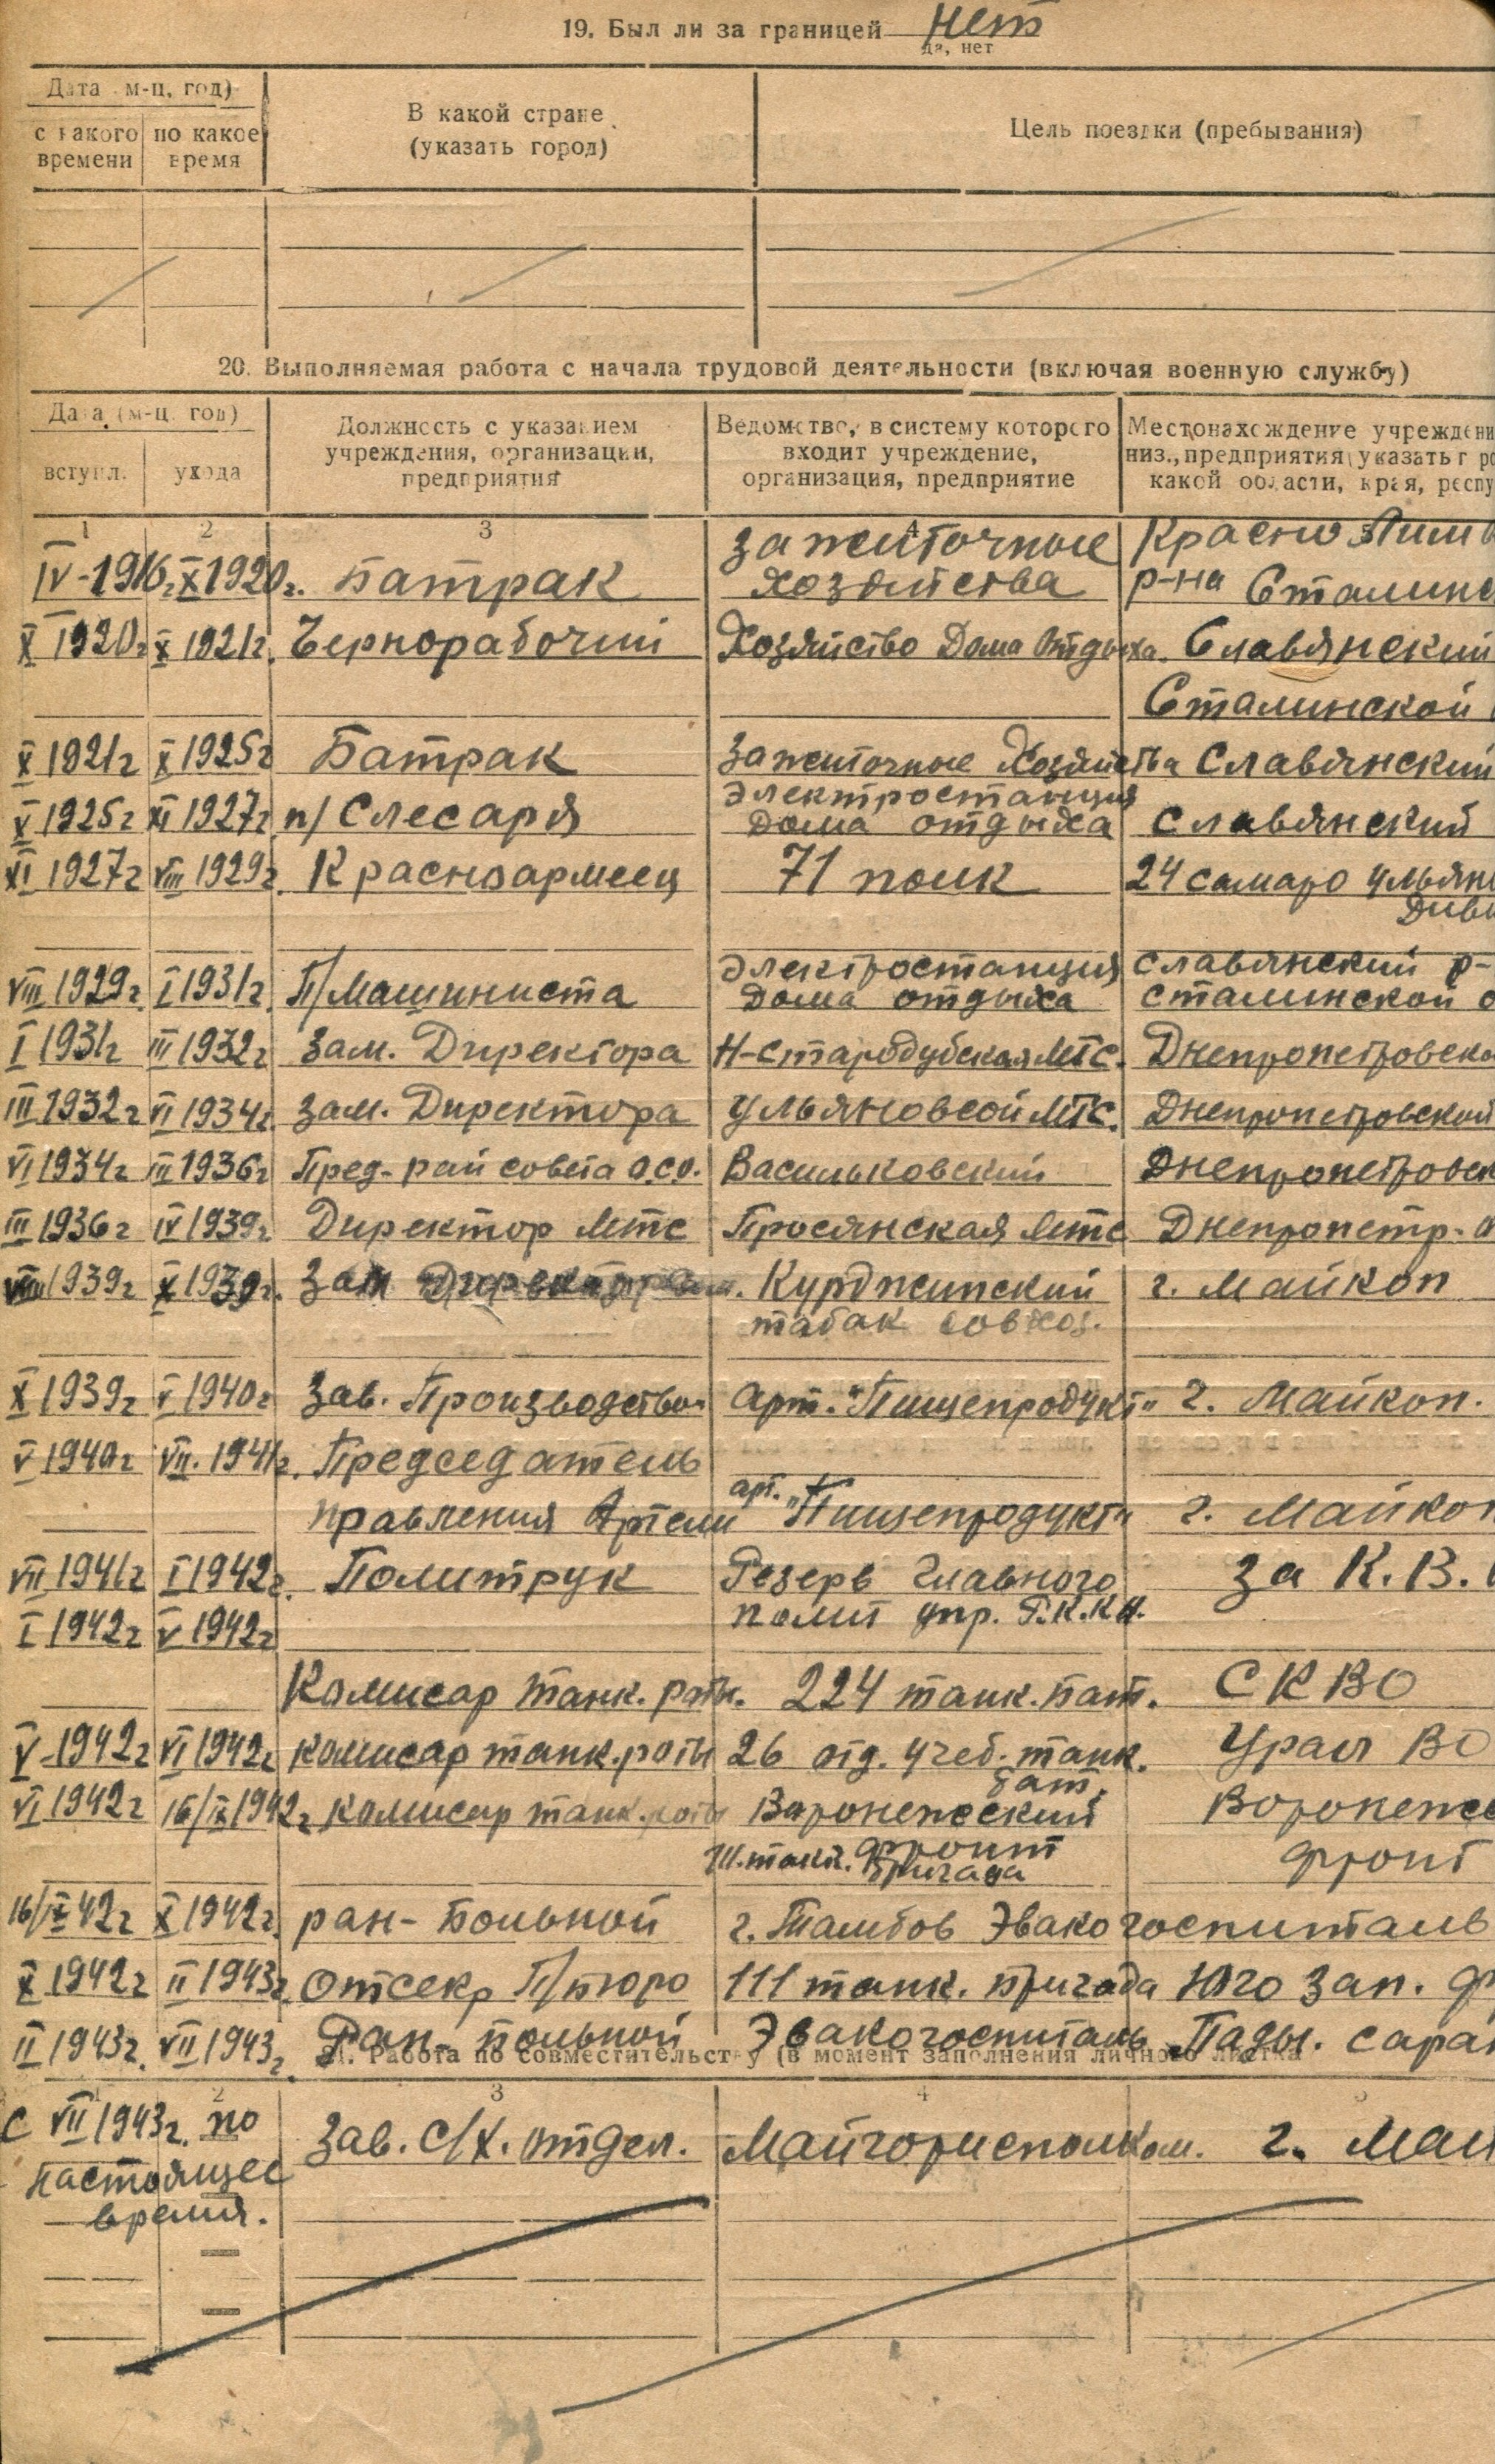 19. Был ли за границей нет
да, нет
Дата м-ц, год)
с какого времени
по какое время
В какой стране
(указать город)
Цель поездки (пребывания)
20. Выполняемая работа с начала трудовой деятельности (включая военную службу)
Дата (м-ц год)
вступл. ухода
Должность с указанием
учреждения, организации,
предприятия
Ведомство, в систему которого
входит учреждение,
организация, предприятие
Местонахождение учреждени
низ., предприятия (указать г ро
какой области, края, респу
1 2 3 4 5
IV-1916г X 1920г. Батрак зажиточные хозяйства Красно Лим
р-на Сталинс
X 1920г X 1921г. Чернорабочий Хозяйство Дома Отдыха. Славянский
Сталинской
X 1921г X 1925г Батрак Зажиточные Хозяйства Славянский
V 1925г XI 1927г п/Слесаря Электростанция
Дома отдыха Славянский
XI 1927г VIII 1929г. Красноармеец 71 полк 24 самаро ульян
Диви
VIII 1929г. I 1931г. П/Машиниста Электростанция Славянский р-
Дома отдыха Сталинской о
I 1931г III 1932г Зам. Директора Н-Стародубская МТС. Днепропетровско
III 1932г VI 1934г. Зам. Директора Ульяновсой МТС. Днепропетровской
VI 1934г III 1936г Пред-рай совета о.с.о. Васильковский Днепропетровск
III 1936г IV 1939г Директор Мтс Просянская Мтс Днепропетр. о
VIII 1939г X 1939г. Зам Директора Курджипский г. Майкоп
табак совхоз.
X 1939г V 1940г Зав. Производством Арт. "Пищепродукт" г. Майкоп.
V 1940г VII. 1941г. Председатель
правления Артели арт. "Пищепродукт" г. Майкоп
VII 1941г I 1942г. Политрук Резерв Главного За К.В.
I 1942г V 1942г полит упр. Р.К.К.А.
Комисар танк. роты. 224 танк. бат. СКВО
V-1942г VI 1942г комисар танк. роты 26 отд. учеб. танк. Урал ВО
бат.
VI 1942г 16/IX 1942г комисар танк. роты Воронежский Воронежс
фронт фронт
111. танк. бригада
16/IX 42г X 1942г. ран-больной г. Тамбов Эвакогоспиталь
X 1942г II 1943г. Отсекр П/бюро 111 танк. бригада Юго Зап. Ф
II 1943г. VII 1943г. Ран-больной Эвакогоспиталь Пады. Сара
21. Работа по совместительству (в момент заполнения личного листка
2 3 4 5
С VII 1943г. по Зав. С/Х. отдел. Майгорисполком. г. Май
настоящее
время.